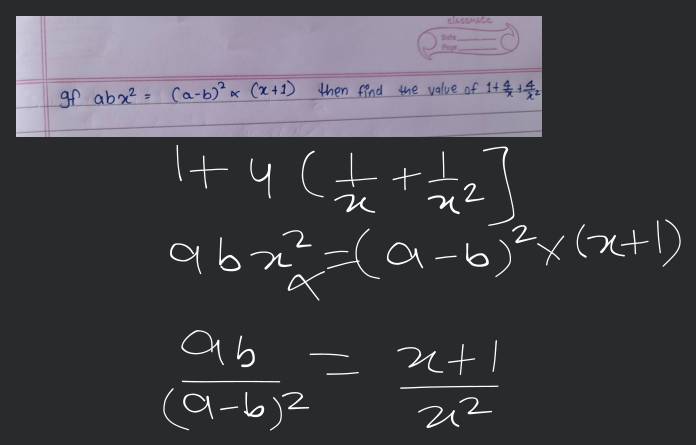 classmate
Date
Page
If abx² = (a-b)² × (x+1) then find the value of 1+4/x+4/x²
1+4(1/x+1/x²]
abx²=(a-b)²×(x+1)
ab/(a-b)² = x+1/x²